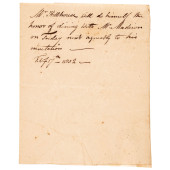 Mr. Hillhouse will do himself the
honor of dining with Mr. Madison
on Friday next agreably to his
invitation
7th 1802